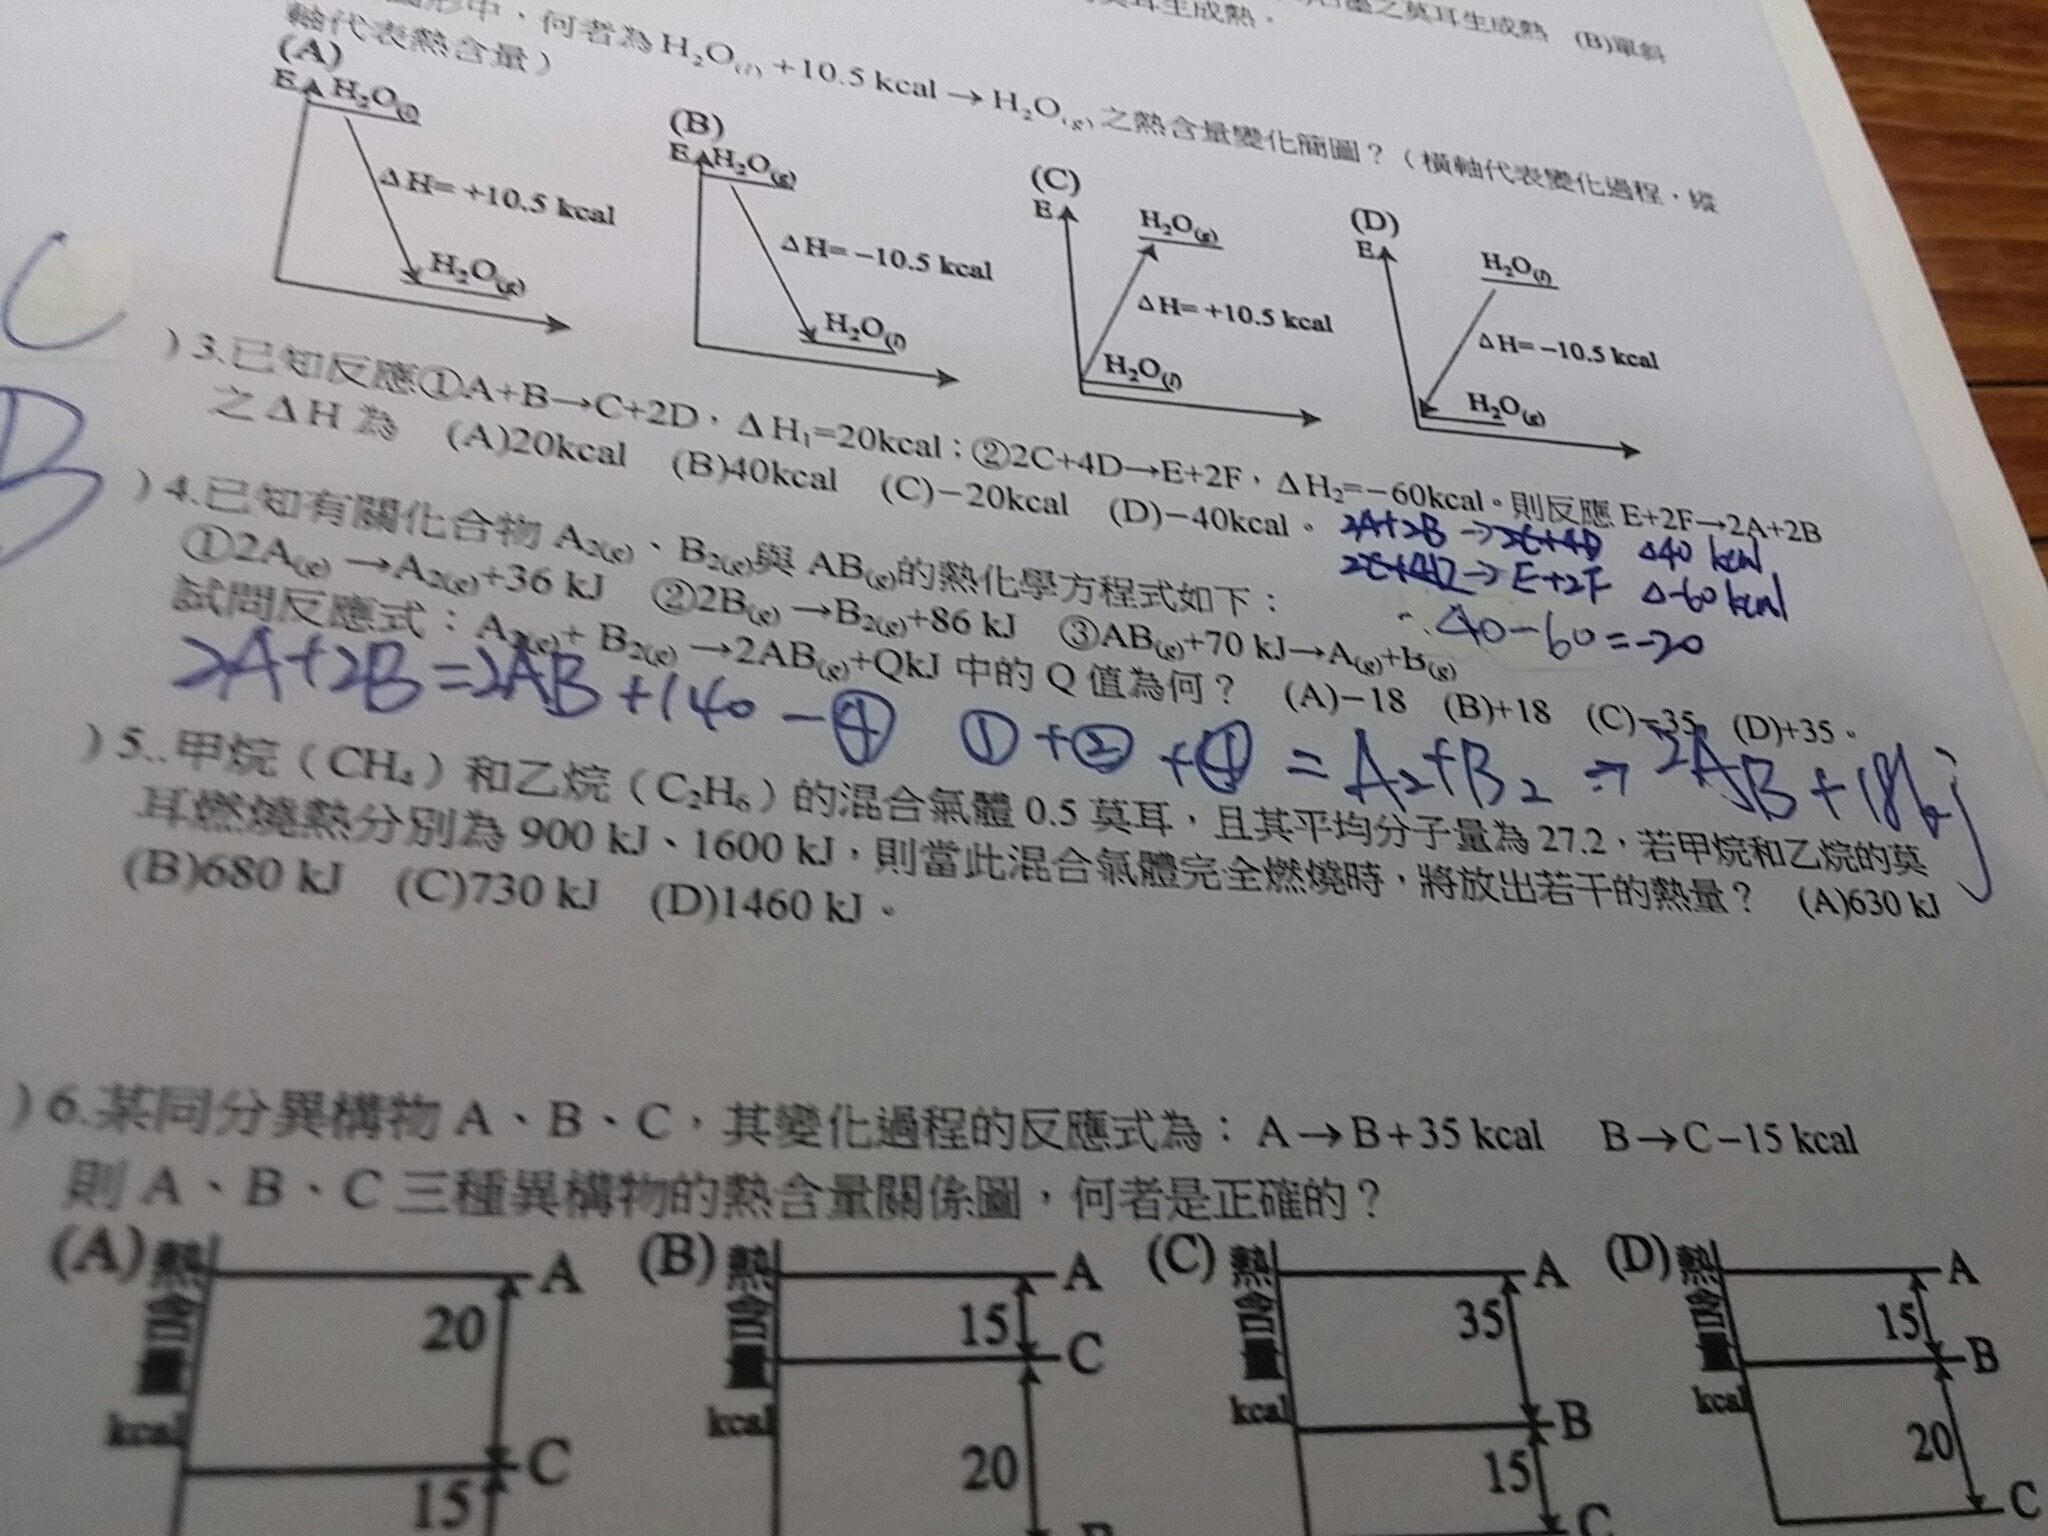 之莫耳生成熱 (B)單斜
莫耳生成熱。
圖形中，何者為H₂O(l) +10.5 kcal → H₂O(g) 之熱含量變化簡圖？（橫軸代表變化過程，縱
軸代表熱含量）
(A)
E H₂O(l)
ΔH= +10.5 kcal
H₂O(g)
(B)
E H₂O(g)
ΔH= −10.5 kcal
H₂O(l)
(C)
E H₂O(g)
ΔH= +10.5 kcal
H₂O(l)
(D)
E H₂O(l)
ΔH= −10.5 kcal
H₂O(g)
C
)3.已知反應①A+B→C+2D，ΔH₁=20kcal；②2C+4D→E+2F，ΔH₂=−60kcal。則反應E+2F→2A+2B
之ΔH為 (A)20kcal (B)40kcal (C)−20kcal (D)−40kcal。
2A+2B → 2C+4D Δ40 kcal
2C+4D → E+2F Δ-60 kcal
∴ 40-60=-20
B
)4.已知有關化合物A₂(g)、B₂(g)與AB(g)的熱化學方程式如下：
①2A(g) →A₂(g)+36 kJ ②2B(g) →B₂(g)+86 kJ ③AB(g)+70 kJ→A(g)+B(g)
試問反應式：A₂(g)+ B₂(g) →2AB(g)+QkJ 中的Q值為何？ (A)−18 (B)+18 (C)−35 (D)+35。
2A+2B=2AB+140 - ④ ①+②+④ = A₂+B₂ → 2AB+18kJ
)5..甲烷（CH₄）和乙烷（C₂H₆）的混合氣體0.5莫耳，且其平均分子量為27.2，若甲烷和乙烷的莫
耳燃燒熱分別為900 kJ、1600 kJ，則當此混合氣體完全燃燒時，將放出若干的熱量？ (A)630 kJ
(B)680 kJ (C)730 kJ (D)1460 kJ。
)6.某同分異構物A、B、C，其變化過程的反應式為：A→B+35 kcal B→C−15 kcal
則A、B、C三種異構物的熱含量關係圖，何者是正確的？
(A)熱含量kcal
A
20
C
15
(B)熱含量kcal
A
15
C
20
(C)熱含量kcal
A
35
B
15
C
(D)熱含量kcal
A
15
B
20
C